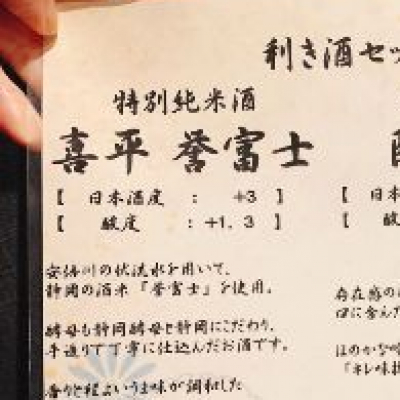 利き酒セッ
特別純米酒
喜平 誉富士
【 日本酒度 : +3 】
【 酸度 : +1,3 】
安倍川の伏流水を用いて、
静岡の酒米「誉富士」を使用。
酵母も静岡酵母と静岡にこだわり、
手造りで丁寧に仕込んだお酒です。
香りと程よいうま味が調和した
【 日本
【 酸
存在感の
口に含んだ
ほのかな
「キレ味